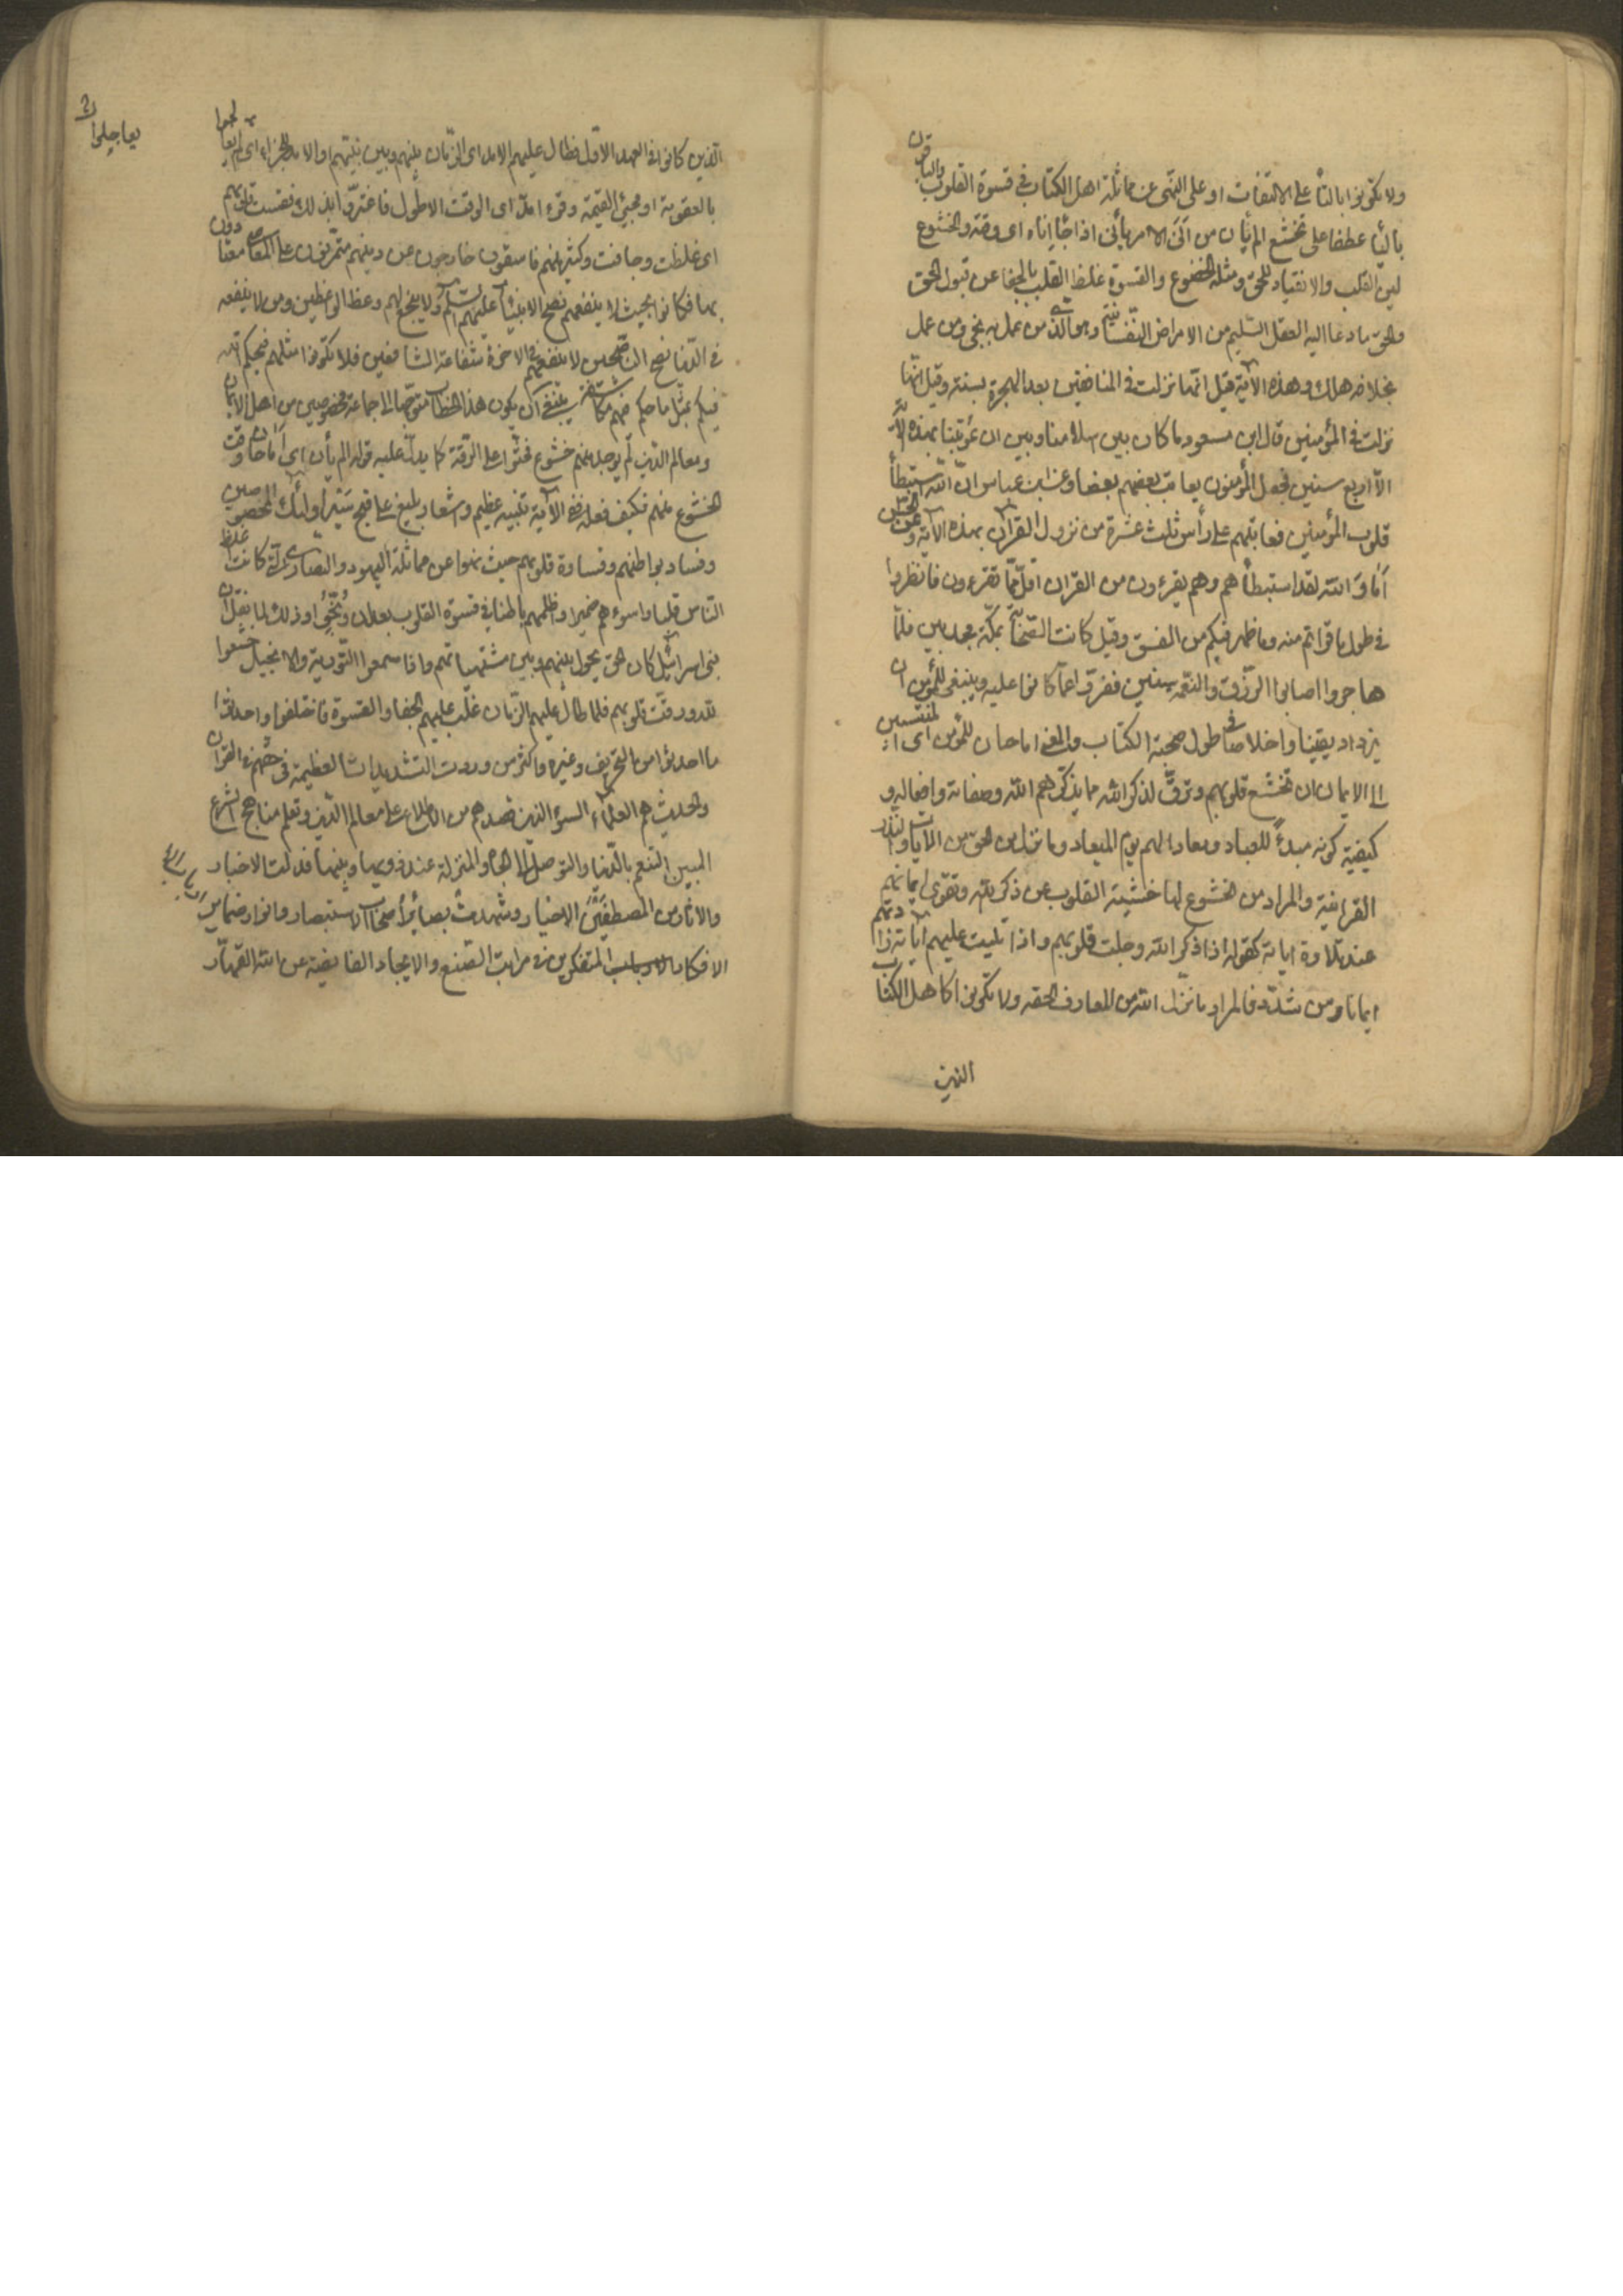 ولا تكونوا بالتاء على الالتفات او على النهى عن مماثلة اهل الكتاب فى قسوة القلوب والباقون
بالياء عطفا على تخشع الم يأن من انى الامر يأنى اذا جاء اناه اى وقته والخشوع
لين القلب والانقياد للحق ومثله الخضوع والقسوة غلظ القلب بالجفا عن قبول الحق
والحق ما دعا اليه العقل السليم من الامراض النفسانية وهو الذى من عمل به نجى ومن عمل
بخلافه هلك وهذه الاية قيل انها نزلت فى المنافقين بعد الهجرة بسنة وقيل انها
نزلت فى المؤمنين قال ابن مسعود ما كان بين اسلامنا وبين ان عوتبنا بهذه الاية
الا اربع سنين فجعل المؤمنون يعاتب بعضهم بعضا وعن ابن عباس ان الله استبطأ
قلوب المؤمنين فعاتبهم على رأس ثلث عشرة من نزول القران بهذه الاية وعن الحسن
اما والله لقد استبطأهم وهم يقرءون من القران اقل مما تقرءون فانظروا
فى طول ما قراتم منه وما ظهر فيكم من الفسق وقيل كانت الصحابة بمكة مجدبين فلما
هاجروا اصابوا الرزق والنعمة سنين ففترّوا عما كانوا عليه وينبغى للمؤمن ان
يزداد يقينا واخلاصا فى طول صحبة الكتاب والمعنى اما حان للمؤمن اى المنتسبين
الى الايمان ان تخشع قلوبهم وترقّ لذكر الله مما يذكرهم الله وصفاته وافعاله و
كيفية كونه مبدءً للعباد ومعادا لهم يوم الميعاد وما نزل من الحق من الايات والنذر
القرانية والمراد من الخشوع لها خشية القلوب عن ذكر الله وتقوى ايمانهم
عند تلاوة اياته كقوله اذا ذكر الله وجلت قلوبهم واذا تليت عليهم اياته زادتهم
ايمانا ومن شدّد فالمراد ما نزل الله من المعارف الحقه ولا تكونوا كاهل الكتاب
الذين
الذين كانوا فى العهد الاول فطال عليهم الامد اى الزمان بينهم وبين نبيهم والامد للجزاء اى لم يعاجلوا
يعاجلوا
بالعقوبة او مجئ القيمة وقرء امدّ اى الوقت الاطول فاغتروا بذلك فقست قلوبهم
اى غلظت وجافت وكثير منهم فاسقون خارجون عن دينهم متمرنون على المعاصى معتادون
بها فكانوا بحيث لا ينفعهم نصح الانبياء عليهم السلم ولا ينجع لهم وعظ الواعظين ومن لا ينفعه
فى الدنيا نصح الناصحين لا ينفعهم فى الاخرة شفاعة الشافعين فلا تكونوا مثلهم فيحكم الله
فيكم بمثل ما حكم فيهم مكاشفة ينبغى ان يكون هذا الخطاب متوجها الى جماعة مخصوصين من اهل الايمان
ومعالم الدين لم يوجد منهم خشوع فحثوا على الرقة كما يدل عليه قوله الم يأن اى اما حان وقت
الخشوع منهم فكيف فعله ففى الاية تنبيه عظيم واشعار بليغ على قبح سيرة اولئك المخصوصين
وفساد بواطنهم وقساوة قلوبهم حيث نهوا عن مماثلة اليهود والنصارى كانت اغلظ
الناس قلبا واسوءهم ضميرا واظلمهم باطنا فى قسوة القلوب بعد ان وُبّخوا وذلك لما نقل ان
بنى اسرائيل كان الحق يحول بينهم وبين مشتهياتهم واذا سمعوا التورية والانجيل خشعوا
لله ورقّت قلوبهم فلما طال عليهم الزمان غلب عليهم الجفا والقسوة فاختلفوا واحدثوا
ما احدثوا من التحريف وغيره واكثر من وردت التشديدات العظيمة فى حقهم فى القران
والحديث هم العلماء السوء الذين قصدهم من الاطلاع على معالم الدين وتعلم مناهج الشرع
المبين التنعم بالدنيا والتوصل الى الجاه والمنزلة عند ذويها وبنيها فدلت الاخبار
والاثار من المصطفين الاخيار وشهدت بصائر اصحاب الاستبصار وانوار ضماير
الافكار المتفكرين فى مراتب الصنع والايجاد الفايضة عن الله القهار